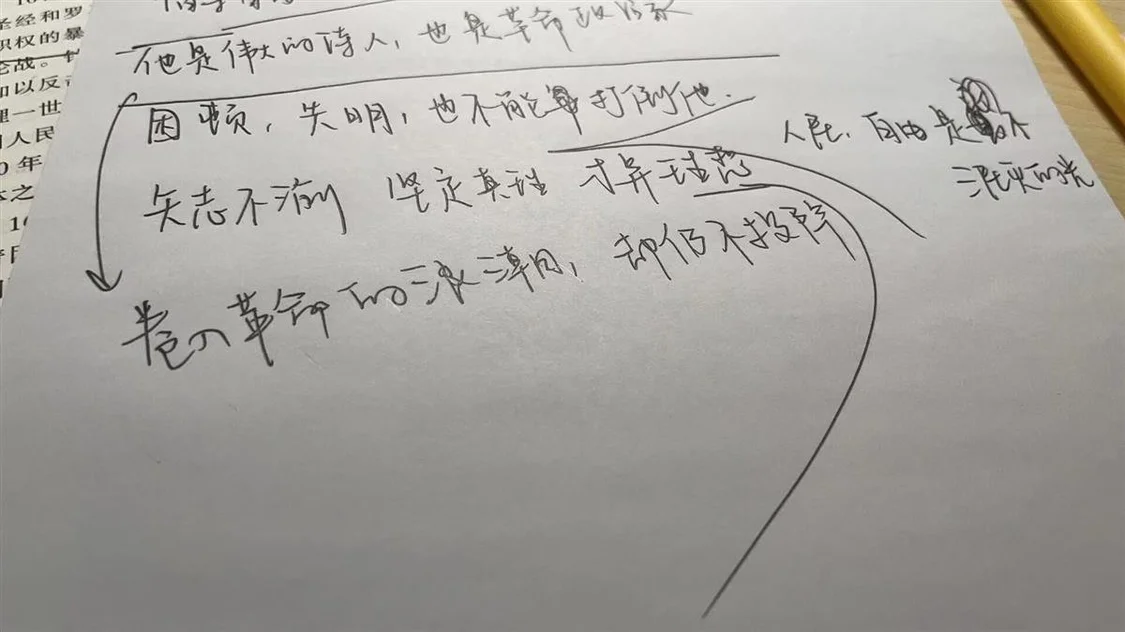 圣经和罗
职权的暴
论战。
加以反
理一世
人民
0年
本之
他是伟大的诗人，也是革命政治家
困顿，失明，也不能打倒他.
人民，自由是不
泯灭的光
矢志不渝 坚定真理
卷入革命的浪潮，却仍不投降